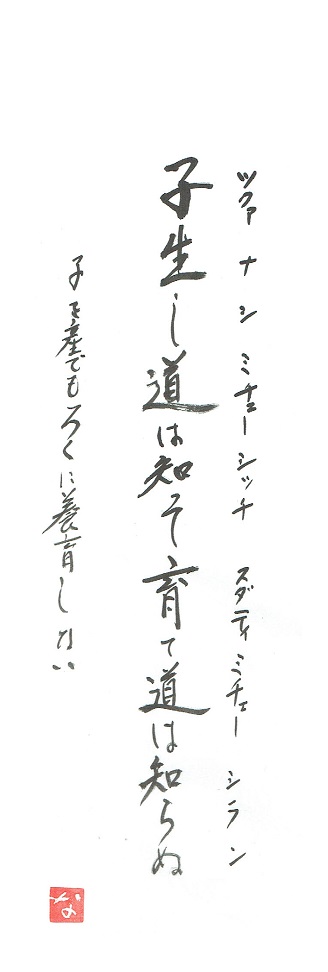 ツクァ ナシ ミチェー シッチ スダティ ミチェー シラン
子生し道は知そ育て道は知らぬ
子を産でもろくに養育しない
な